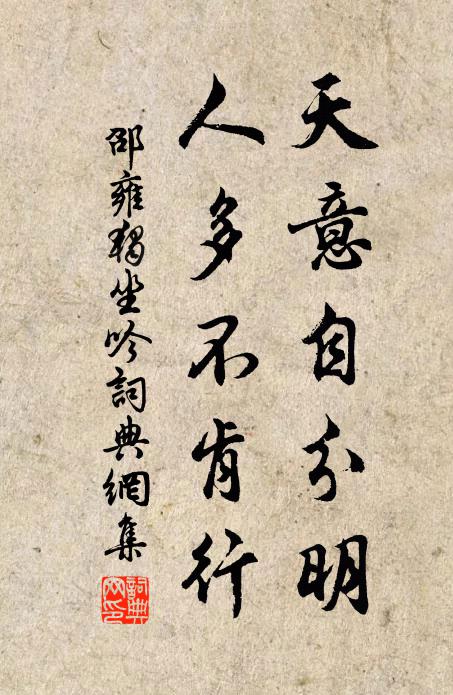 天意自分明
人多不肯行
邵雍獨坐吟詞典網集
詞典
網印